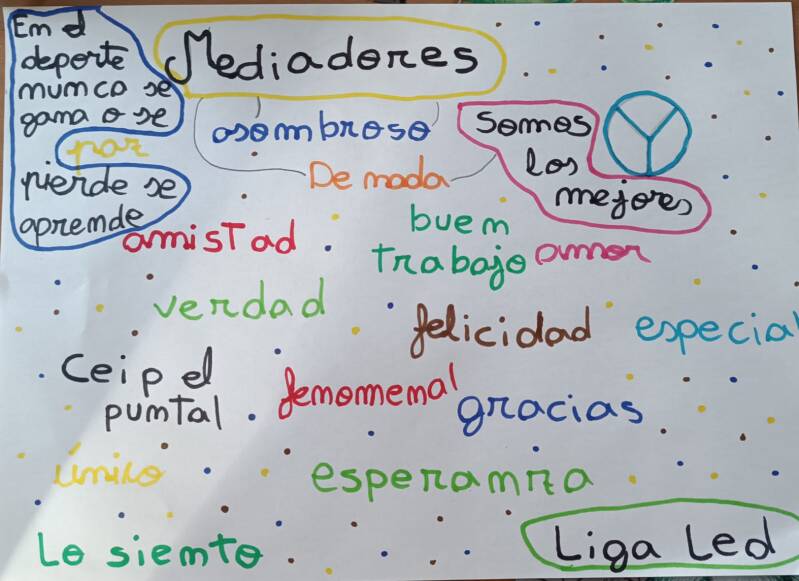 En el
deporte
nunca se
gana o se
paz
pierde se
aprende
Mediadores
asombroso
De nada
Somos
los
mejores
amistad
buen
trabajo
amor
verdad
felicidad
especial
Ceip el
puntal
fenomenal
gracias
único
esperanza
Lo siento
Liga Led